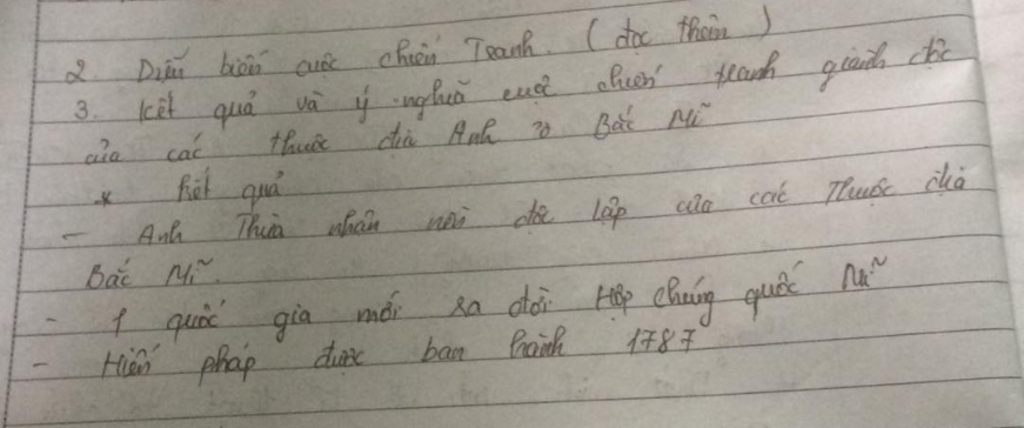 2 Diễn biến cuộc chiến Tranh. (đọc thêm)
3. Kết quả và ý nghĩa cuộc chiến tranh giành độc
của các thuộc địa Anh ở Bắc Mĩ
* Kết quả
- Anh Thừa nhận nền độc lập của các Thuộc địa
Bắc Mĩ.
- 1 quốc gia mới ra đời Hợp chúng quốc Mĩ
- Hiến pháp được ban hành 1787